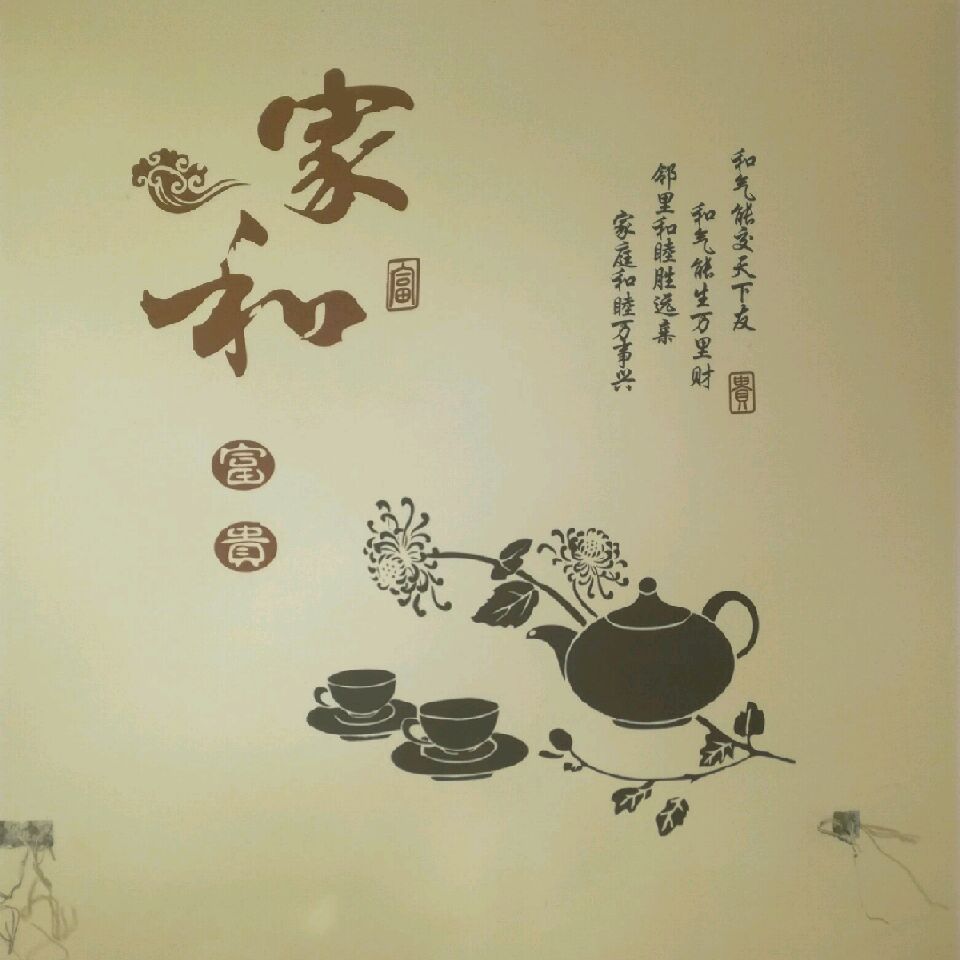 家和
富
富
貴
和气能交天下友
和气能生万里财
邻里和睦胜远亲
家庭和睦万事兴
貴